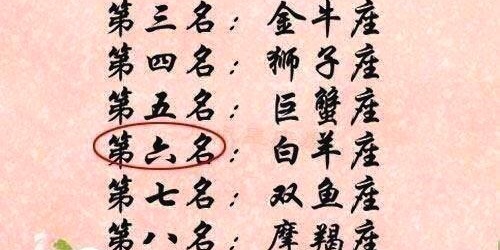 第三名：金牛座
第四名：狮子座
第五名：巨蟹座
第六名：白羊座
第七名：双鱼座
第八名：摩羯座